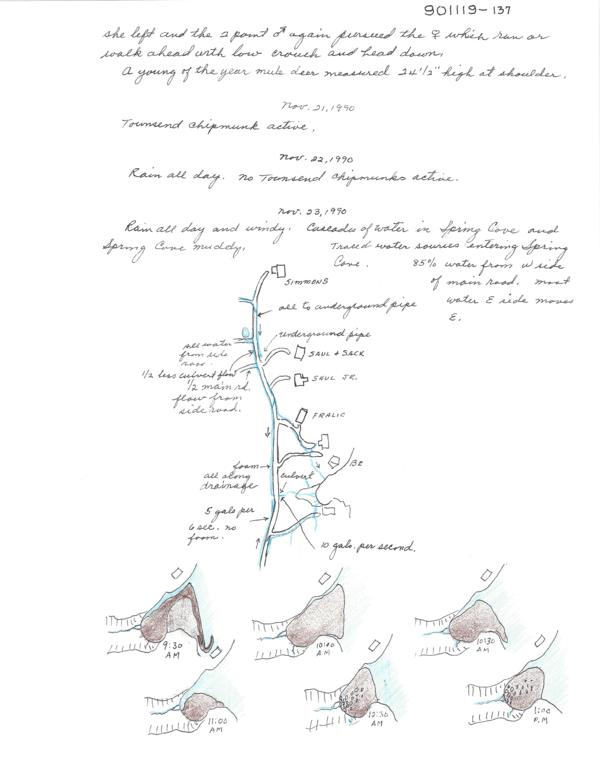 901119-137
she left and the 2 point ♂ again pursued the ♀ which ran or
walk ahead with low crouch and head down.
A young of the year mule deer measured 24½" high at shoulder.
Nov. 21, 1990
Townsend chipmunk active.
Nov. 22, 1990
Rain all day. no Townsend chipmunks active.
Nov. 23, 1990
Rain all day and windy. Cascades of water in Spring Cove and
Spring Cove muddy. Traced water sources entering Spring
Cove. 85% water from W side
of main road. most
water E side moves
E.
SIMMONS
all to underground pipe
underground pipe
all water
from side
road.
SAUL + SACK
1/2 less culvert flow
1/2 main rd.
flow from
side road.
SAUL JR.
FRALIC
B2
foam
all along
drainage
culvert
5 gals per
6 sec. no
foam.
10 gals. per second.
9:30
AM
10:00
A.M
10:30
AM
11:00
AM
12:30
AM
1:00
P.M